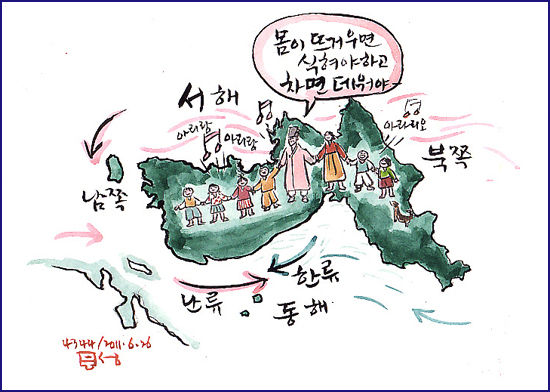 몸이 뜨거우면
식혀야하고
차면 데워야-
서해
아리랑
아리랑
아라리오
북쪽
남쪽
난류
한류
동해
4344/2011.6.26